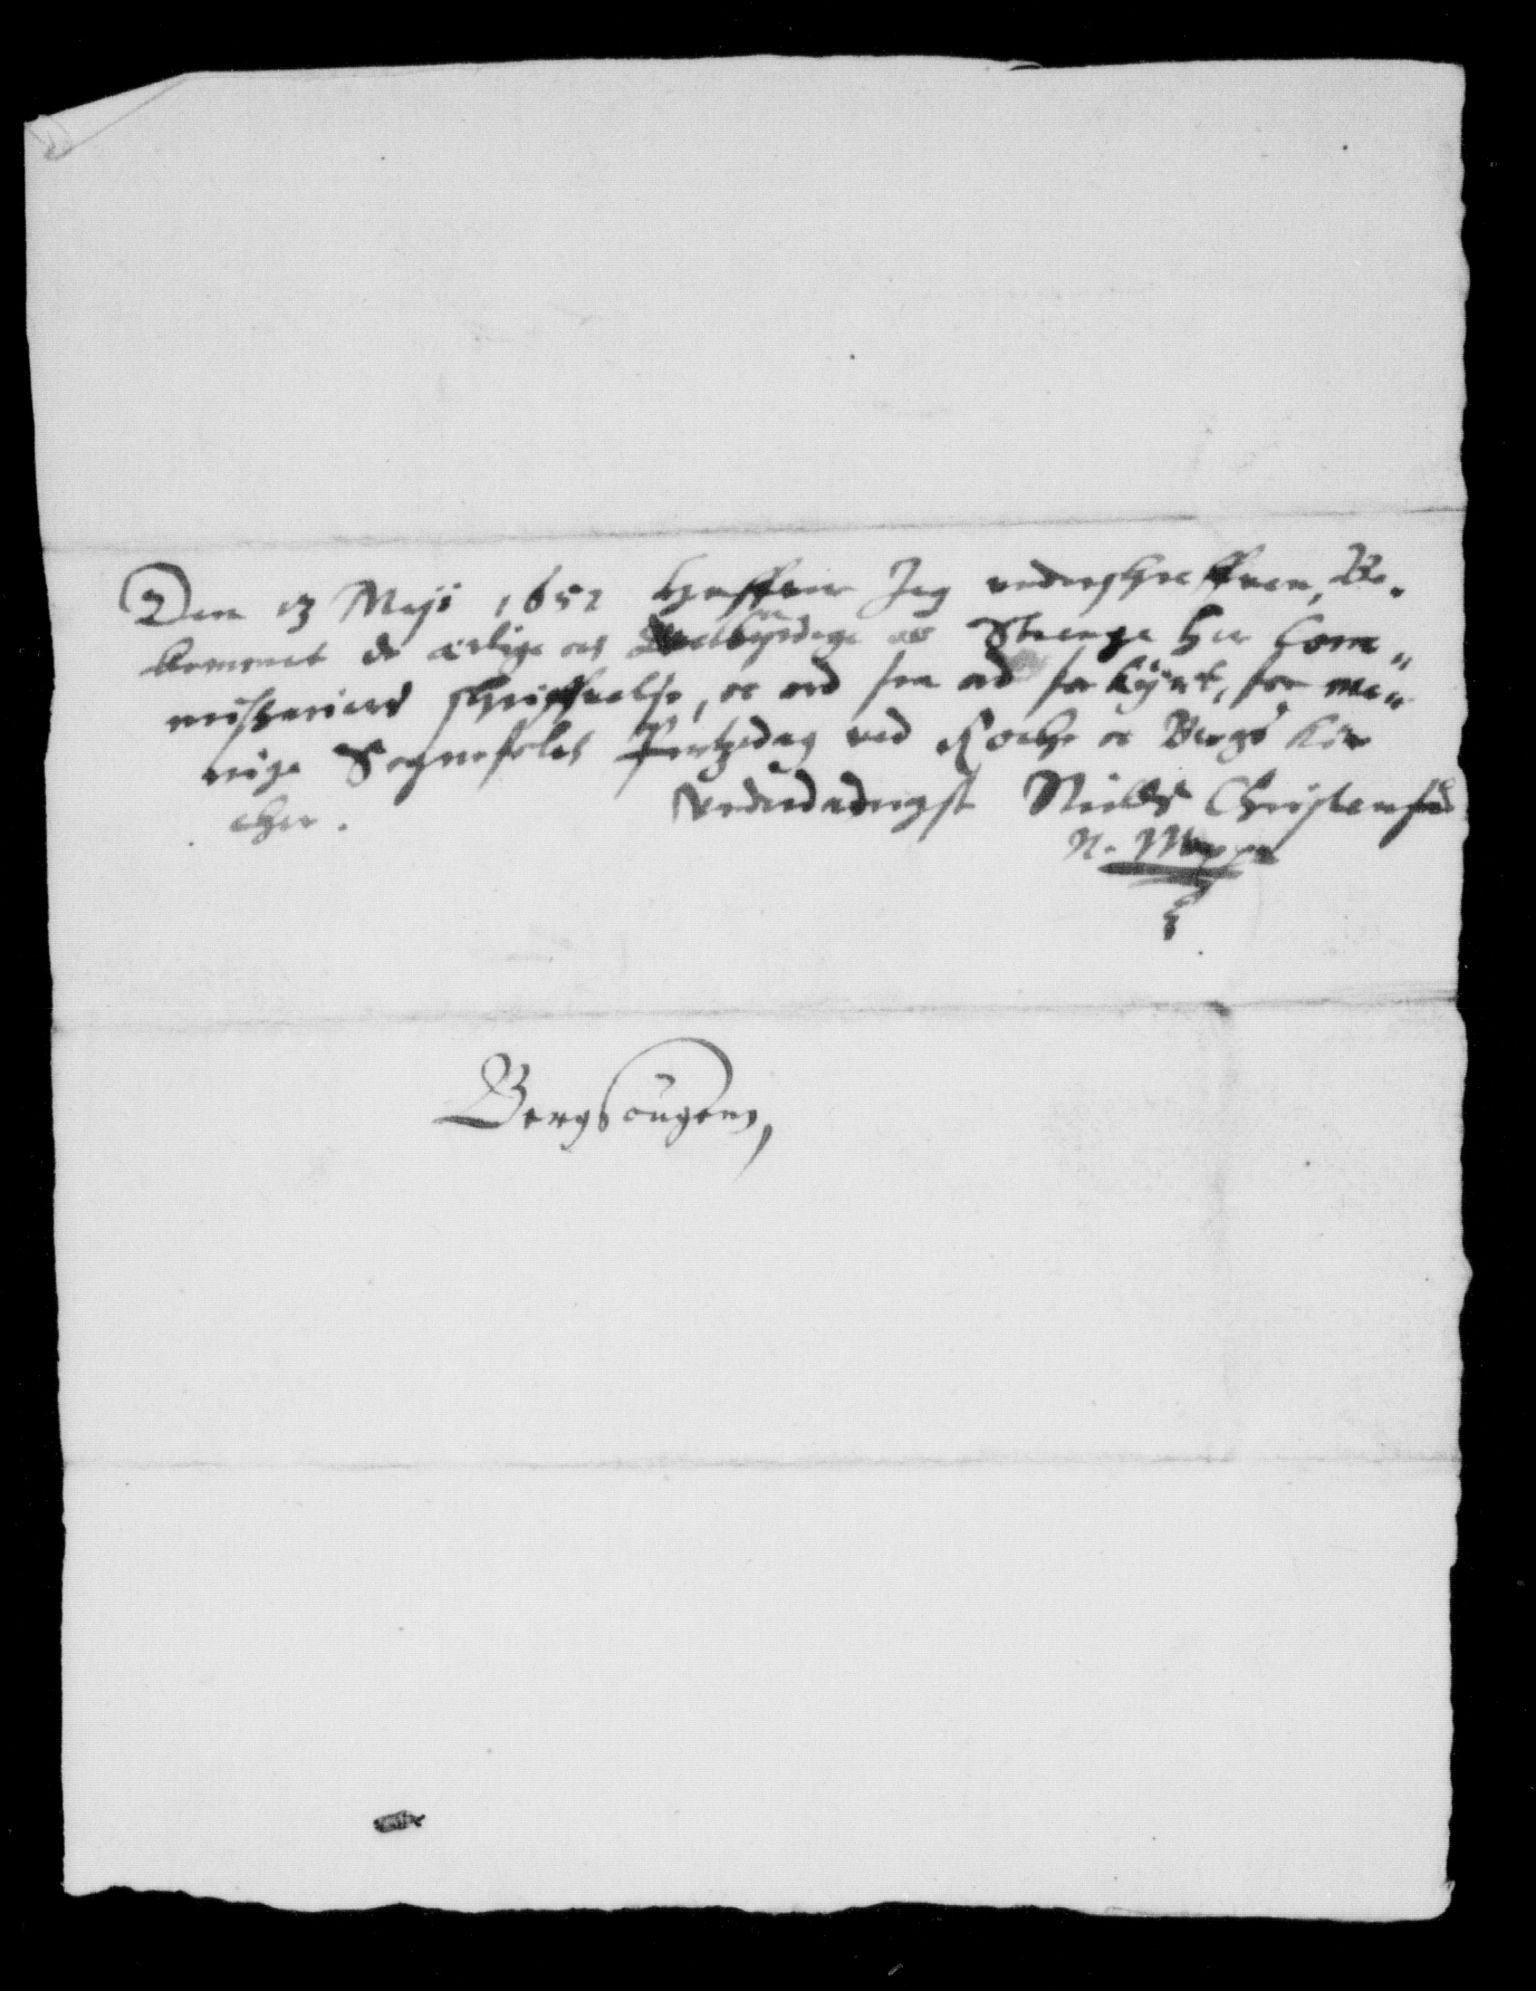 Den 13 Maji 1652 haffuer Jeg vnderschreffuen, Be-
kommet de ærlige och Velbyrdige oc Strenge Her Com„
missariers schriffuelse, oc ord fra ord for kÿnt, for me„
nige Sognefolck Pentzedag ved Rocke oc Bergs Kir
cher.
Vnderdanigst Niels Christensøn
Bergsougens,